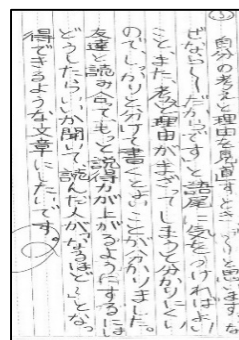 自分の考えと理由を見直すとき、「〜と思います。な
ぜなら〜だからです。」と語尾に気をつければよい
こと、また、考えと理由がまざってしまうと分かりにくい
ので、しっかりと分けて書くとよいことが分かりました。
友達と読み合って、もっと説得力が上がるようにするには
どうしたらいいか聞いて、読んだ人が「なるほど〜」となっ
得できるような文章にしたいです。